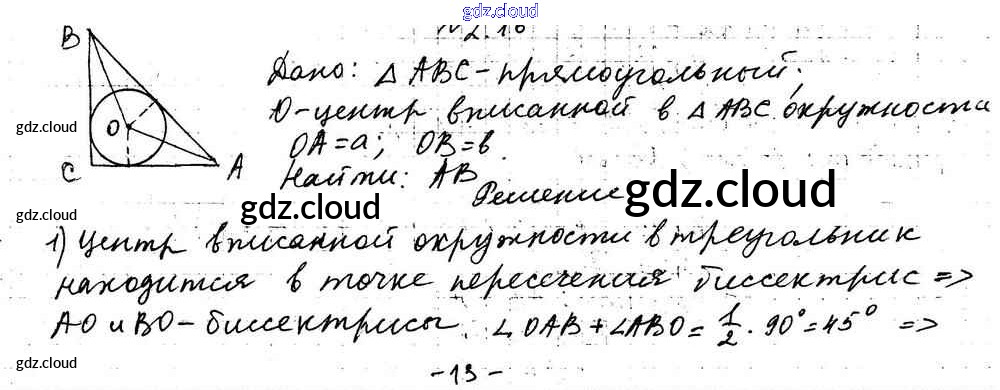 gdz.cloud
№2.16
B
Дано: △ ABC - прямоугольный;
O-центр вписанной в △ ABC окружности
gdz.cloud
O
OA=a; OB=b.
C
A
Найти: AB
gdz.cloud
Решение
gdz.cloud
gdz.cloud
1) Центр вписанной окружности в треугольник
находится в точке пересечения биссектрис =>
AO и BO - биссектрисы. ∠OAB+∠ABO=1/2·90°=45° =>
gdz.cloud
gdz.cloud
-13-